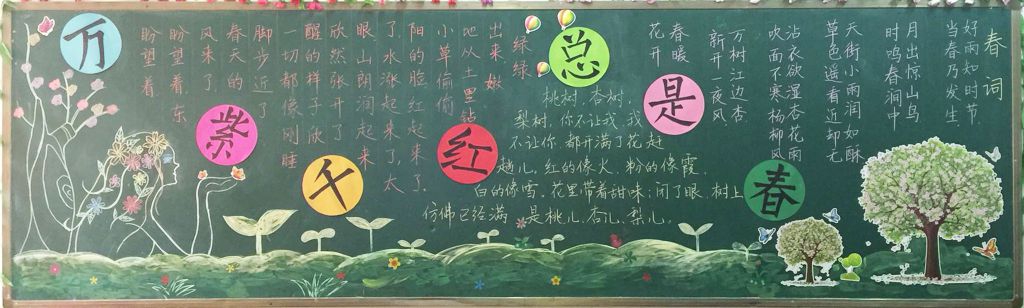 万紫千红总是春
春词
好雨知时节
当春乃发生
月出惊山鸟
时鸣春涧中
天街小雨润如酥
草色遥看近却无
沾衣欲湿杏花雨
吹面不寒杨柳风
万树江边杏
新开一夜风
春暖
花开
盼望着
盼望着,东
风来了
春天的
脚步近了
一切都像刚睡
醒的样子欣
欣然张开了
眼山朗润起来
了,水涨起来了,太
阳的脸红起来了.
小草偷偷
地从土里钻
出来嫩
绿绿
桃树、杏树、
梨树,你不让我,我
不让你,都开满了花赶
趟儿。红的像火,粉的像霞,
白的像雪。花里带着甜味;闭了眼,树上
仿佛已经满是桃儿、杏儿、梨儿。